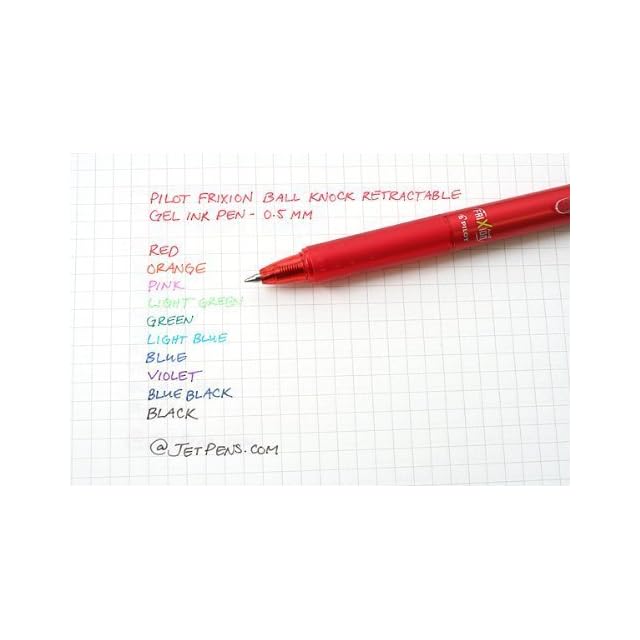 PILOT FRIXION BALL KNOCK RETRACTABLE
GEL INK PEN - 0.5 MM
RED
ORANGE
PINK
LIGHT GREEN
GREEN
LIGHT BLUE
BLUE
VIOLET
BLUE BLACK
BLACK
@JETPENS.COM
FRIXION
PILOT